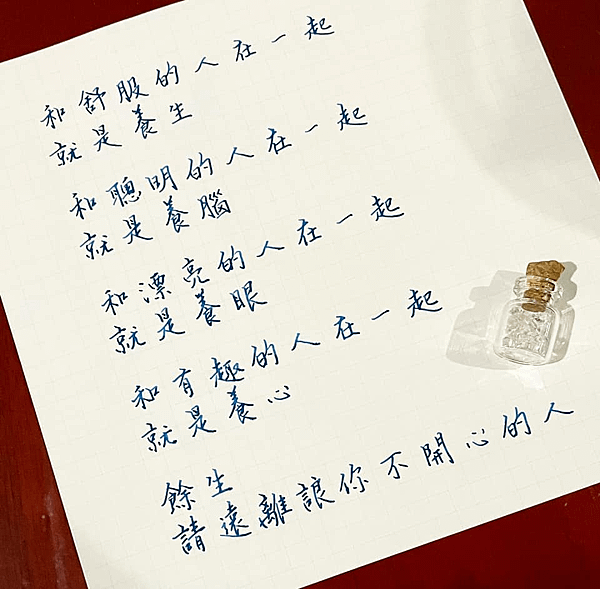 和舒服的人在一起
就是養生
和聰明的人在一起
就是養腦
和漂亮的人在一起
就是養眼
和有趣的人在一起
就是養心
餘生
請遠離讓你不開心的人